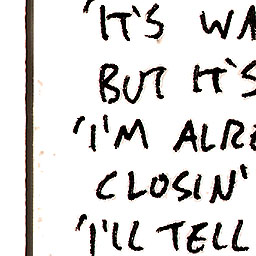 'IT'S WA
BUT IT'S
'I'M ALRE
CLOSIN'
'I'LL TELL